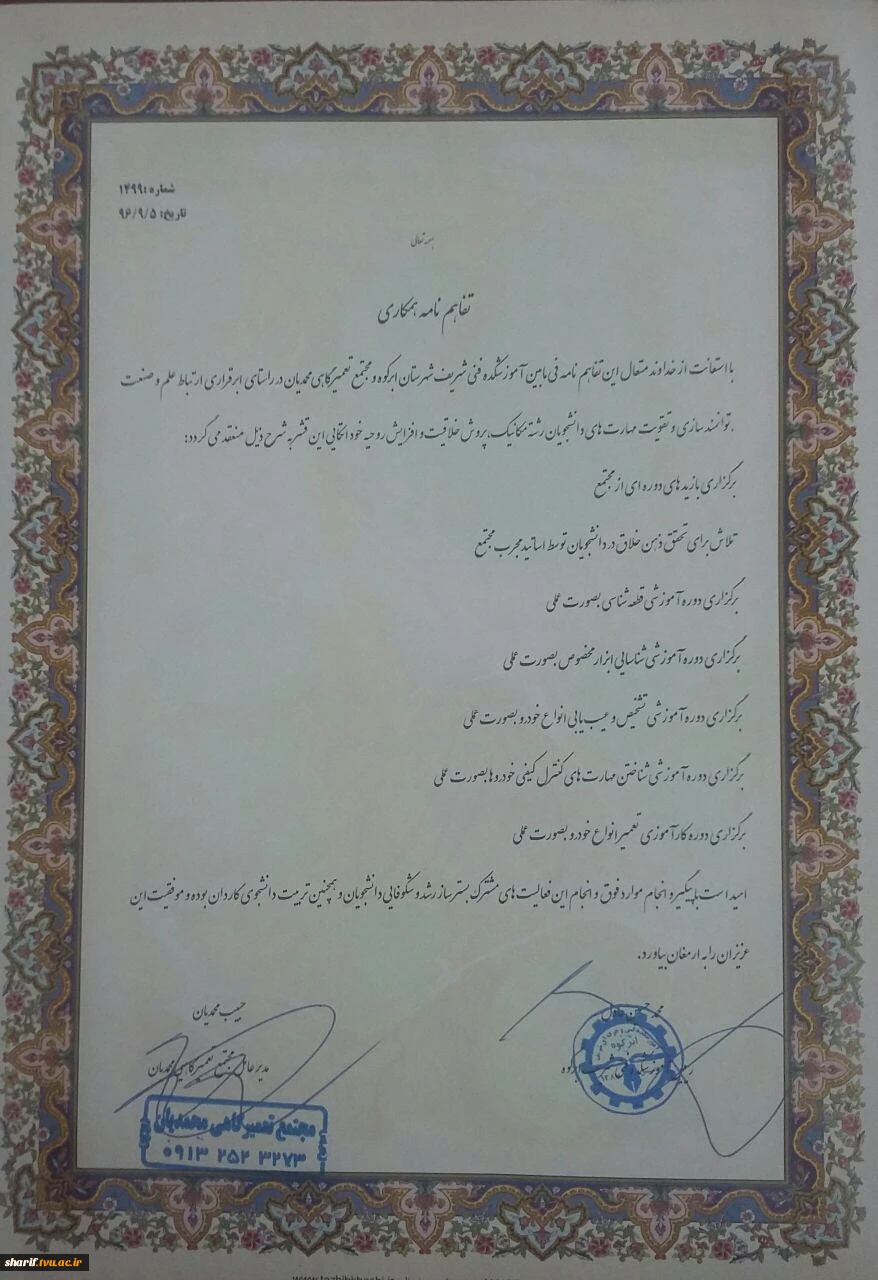 شماره: ۱۴۹۹
تاریخ: ۹۶/۹/۵
بسمه تعالی
تفاهم نامه همکاری
با استعانت از خداوند متعال این تفاهم نامه فی مابین آموزشکده فنی شریف شهرستان ابرکوه و مجتمع تعمیرگاهی محمدیان در راستای ابرقراری ارتباط علم و صنعت
،توانمند سازی و تقویت مهارت های دانشجویان رشته مکانیک،پروش خلاقیت و افزایش روحیه خود اتکایی این قشر به شرح ذیل منعقد می گردد:
برگزاری بازید های دوره ای از مجتمع
تلاش برای تحقق ذهن خلاق در دانشجویان توسط اساتید مجرب مجتمع
برگزاری دوره آموزشی قطعه شناسی بصورت عملی
برگزاری دوره آموزشی شناسایی ابزار مخصوص بصورت عملی
برگزاری دوره آموزشی تشخیص و عیب یابی انواع خودرو بصورت عملی
برگزاری دوره آموزشی شناختن مهارت های کنترل کیفی خودروها بصورت عملی
برگزاری دوره کارآموزی تعمیر انواع خودرو بصورت عملی
امید است با پیگیر و انجام موارد فوق و انجام این فعالیت های مشترک بستر ساز رشد و شکوفایی دانشجویان و همچنین تربیت دانشجوی کاردان بوده و موفقیت این
عزیزان را به ارمغان بیاورد.
محمد حسن
حبیب محمدیان
ابرکوه
مدیر عامل مجتمع تعمیرگاهی محمدیان
مجتمع تعمیرگاهی محمدیان
۰۹۱۳ ۲۵۲ ۳۲۷۳
sharif.tvu.ac.ir